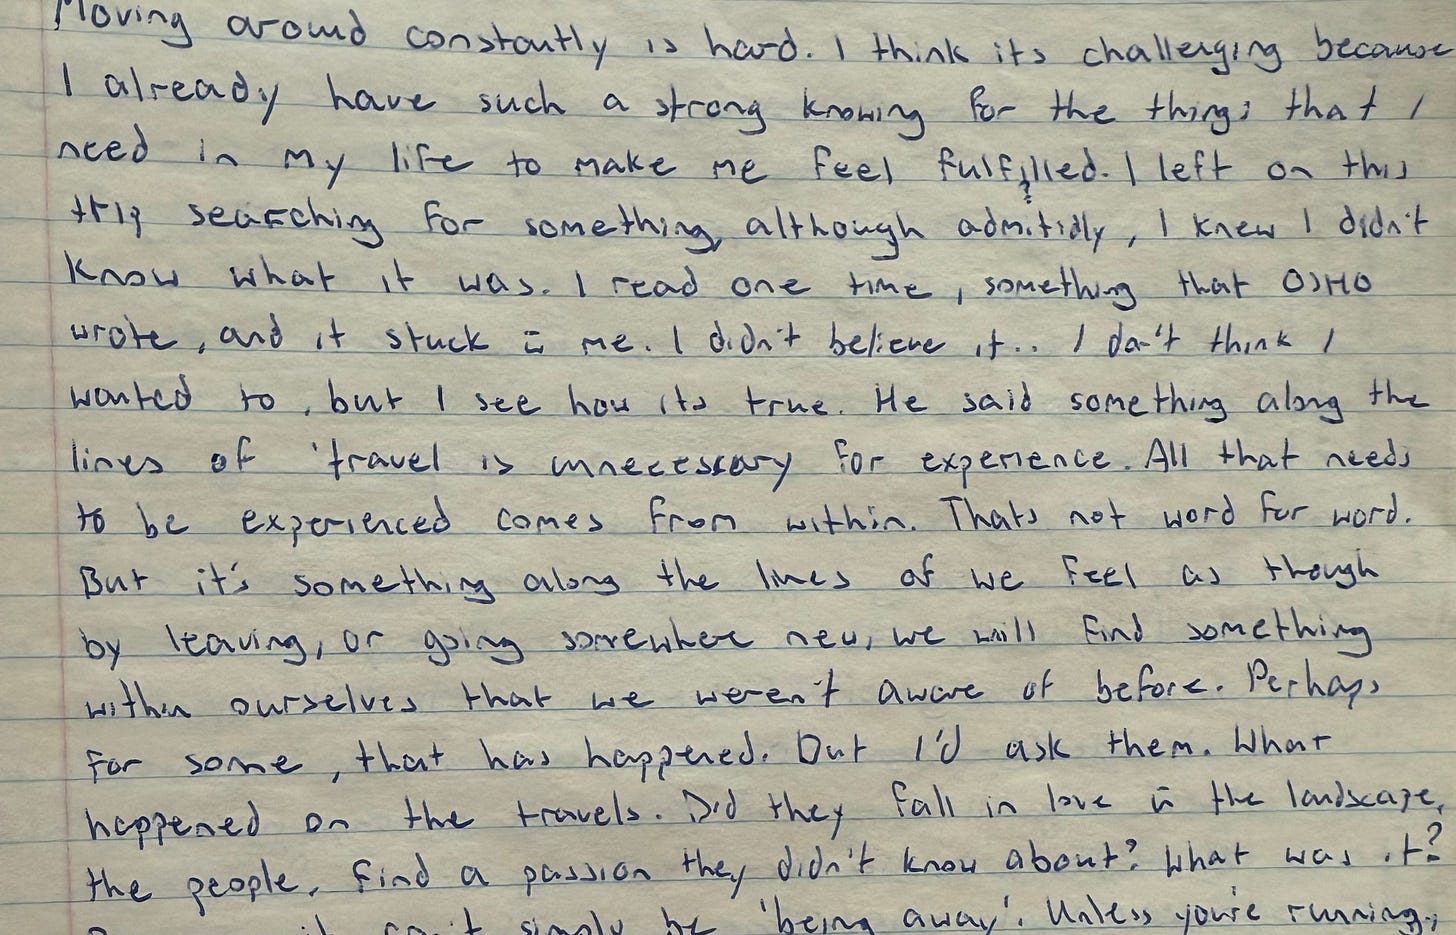 Moving around constantly is hard. I think its challenging because
I already have such a strong knowing for the things that I
need in my life to make me feel fulfilled. I left on this
trip searching for something, although admitidly, I knew I didn't
know what it was. I read one time, something that OSHO
wrote, and it stuck c̄ me. I didn't believe it.. I don't think I
wanted to, but I see how its true. He said something along the
lines of 'travel is unnecessary for experience. All that needs
to be experienced comes from within. Thats not word for word.
But it's something along the lines of we feel as though
by leaving, or going somewhere new, we will find something
within ourselves that we weren't aware of before. Perhaps
for some, that has happened. But I'd ask them. What
happened on the travels. Did they fall in love c̄ the landscape,
the people, find a passion they didn't know about? What was it?
it can't simply be 'being away'. Unless you're running,